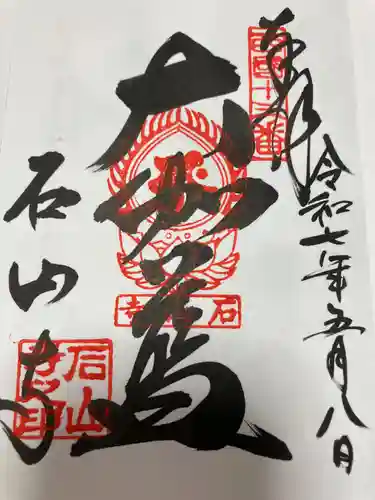 奉拝
令和七年五月八日
西国十三番
大伽藍
石山寺
石山寺
石山寺印